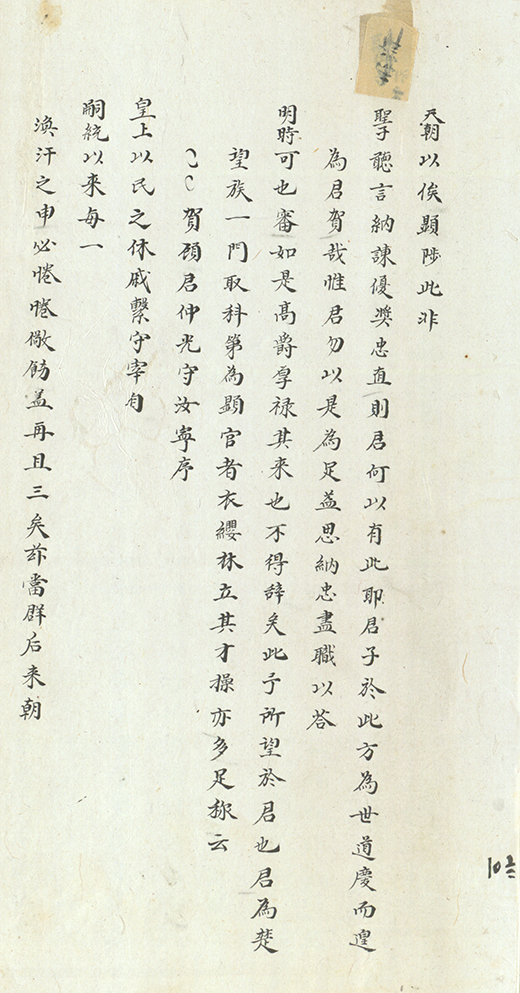 天朝以俟顯陟此非
聖子聽言納諫優奬忠直則君何以有此耶君子於此方為世道慶而遑
為君賀哉惟君勿以是為足益思納忠盡職以答
明時可也審如是高爵厚禄其来也不得辞矣此予所望於君也君為楚
望族一門取科第為顯官者衣纓林立其才操亦多足称云
賀顧君仲光守汝寧序
皇上以民之休戚繫守宰自
嗣統以来每一
渙汗之申必惓惓儆飭盖再且三矣茲當群后来朝